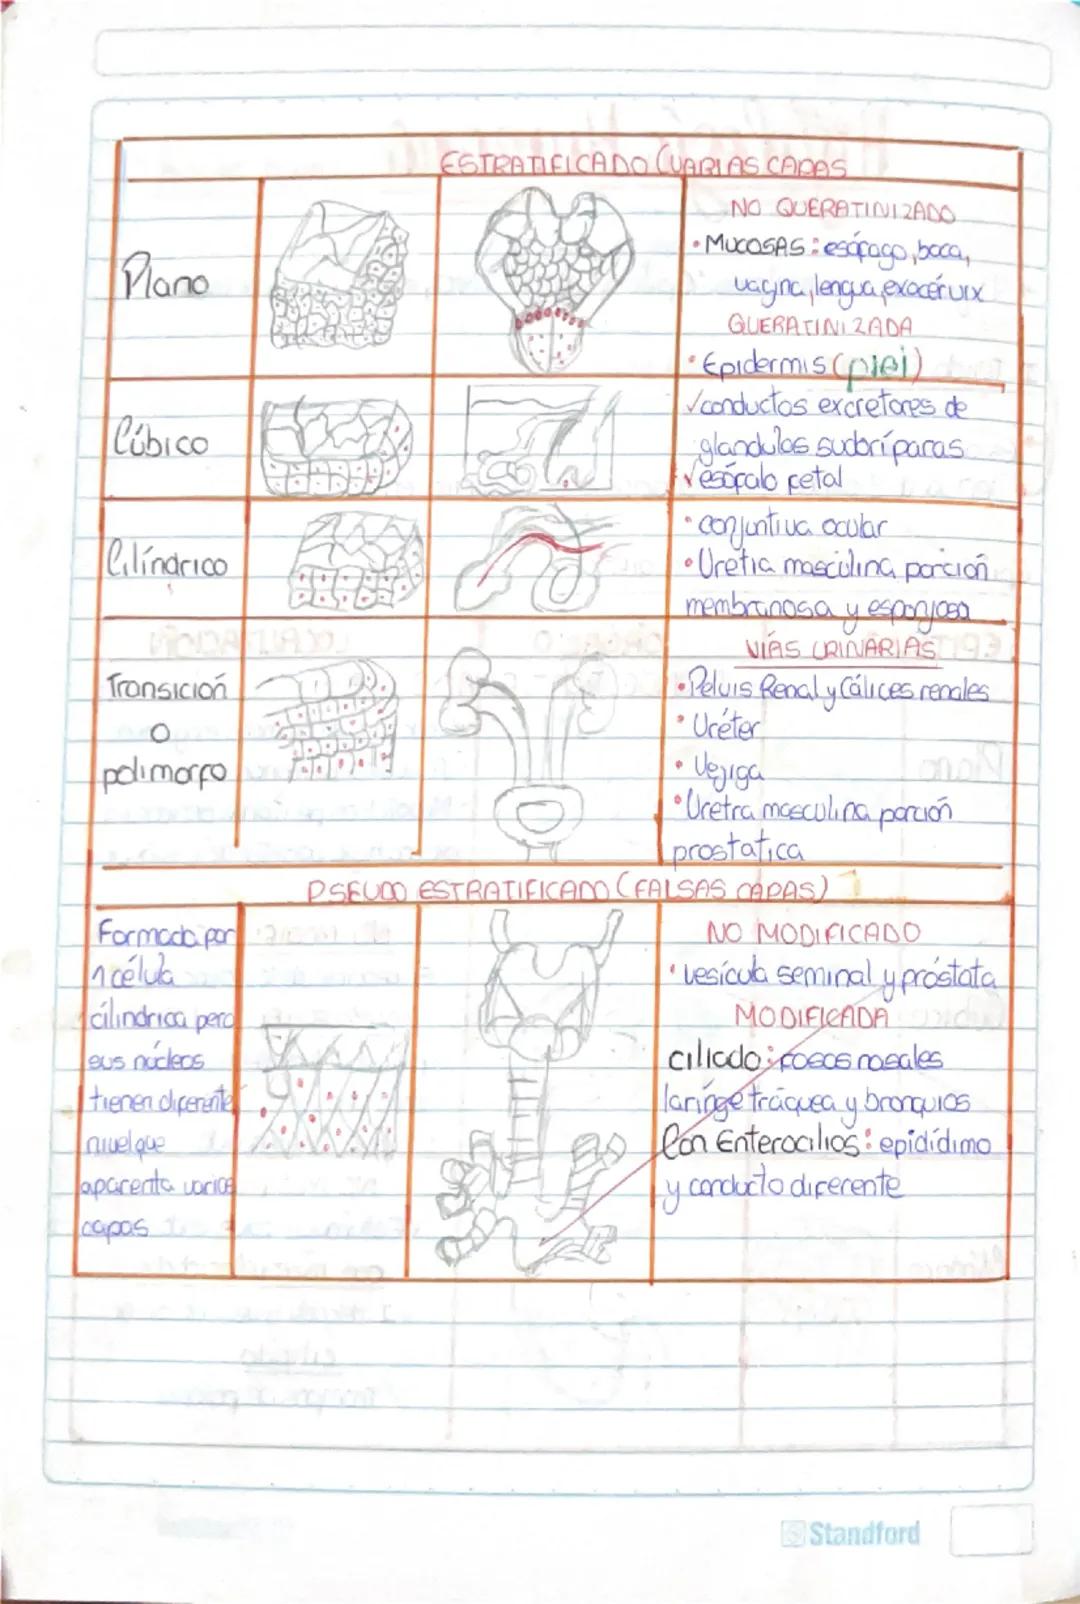 ESTRATIFICADO (VARIAS CAPAS
Plano
NO QUERATINIZADO
• MUCOSAS: esófago, boca,
vagina, lengua, exocérvix
QUERATINIZADA
• Epidermis (piel)
Cúbico
✓conductos excretores de
glandulas sudoríparas
✓esófalo fetal
Cilíndrico
• conjuntiva ocular
• Uretra masculina porción
membranosa y esponjosa
Transición
o
polimorfo
VÍAS URINARIAS
• Pelvis Renal y Cálices renales
• Uréter
• Vejiga
• Uretra masculina porción
prostatica
PSEUDO ESTRATIFICADO (FALSAS CAPAS)
Formada por
1 célula
cilindrica pero
sus núcleos
tienen diferente
nivel que
aparenta varias
capas
NO MODIFICADO
• vesícula seminal y próstata
MODIFICADA
ciliado: fosas nasales
laringe tráquea y bronquios
Con Enterocilios: epidídimo
y conducto diferente
Standford